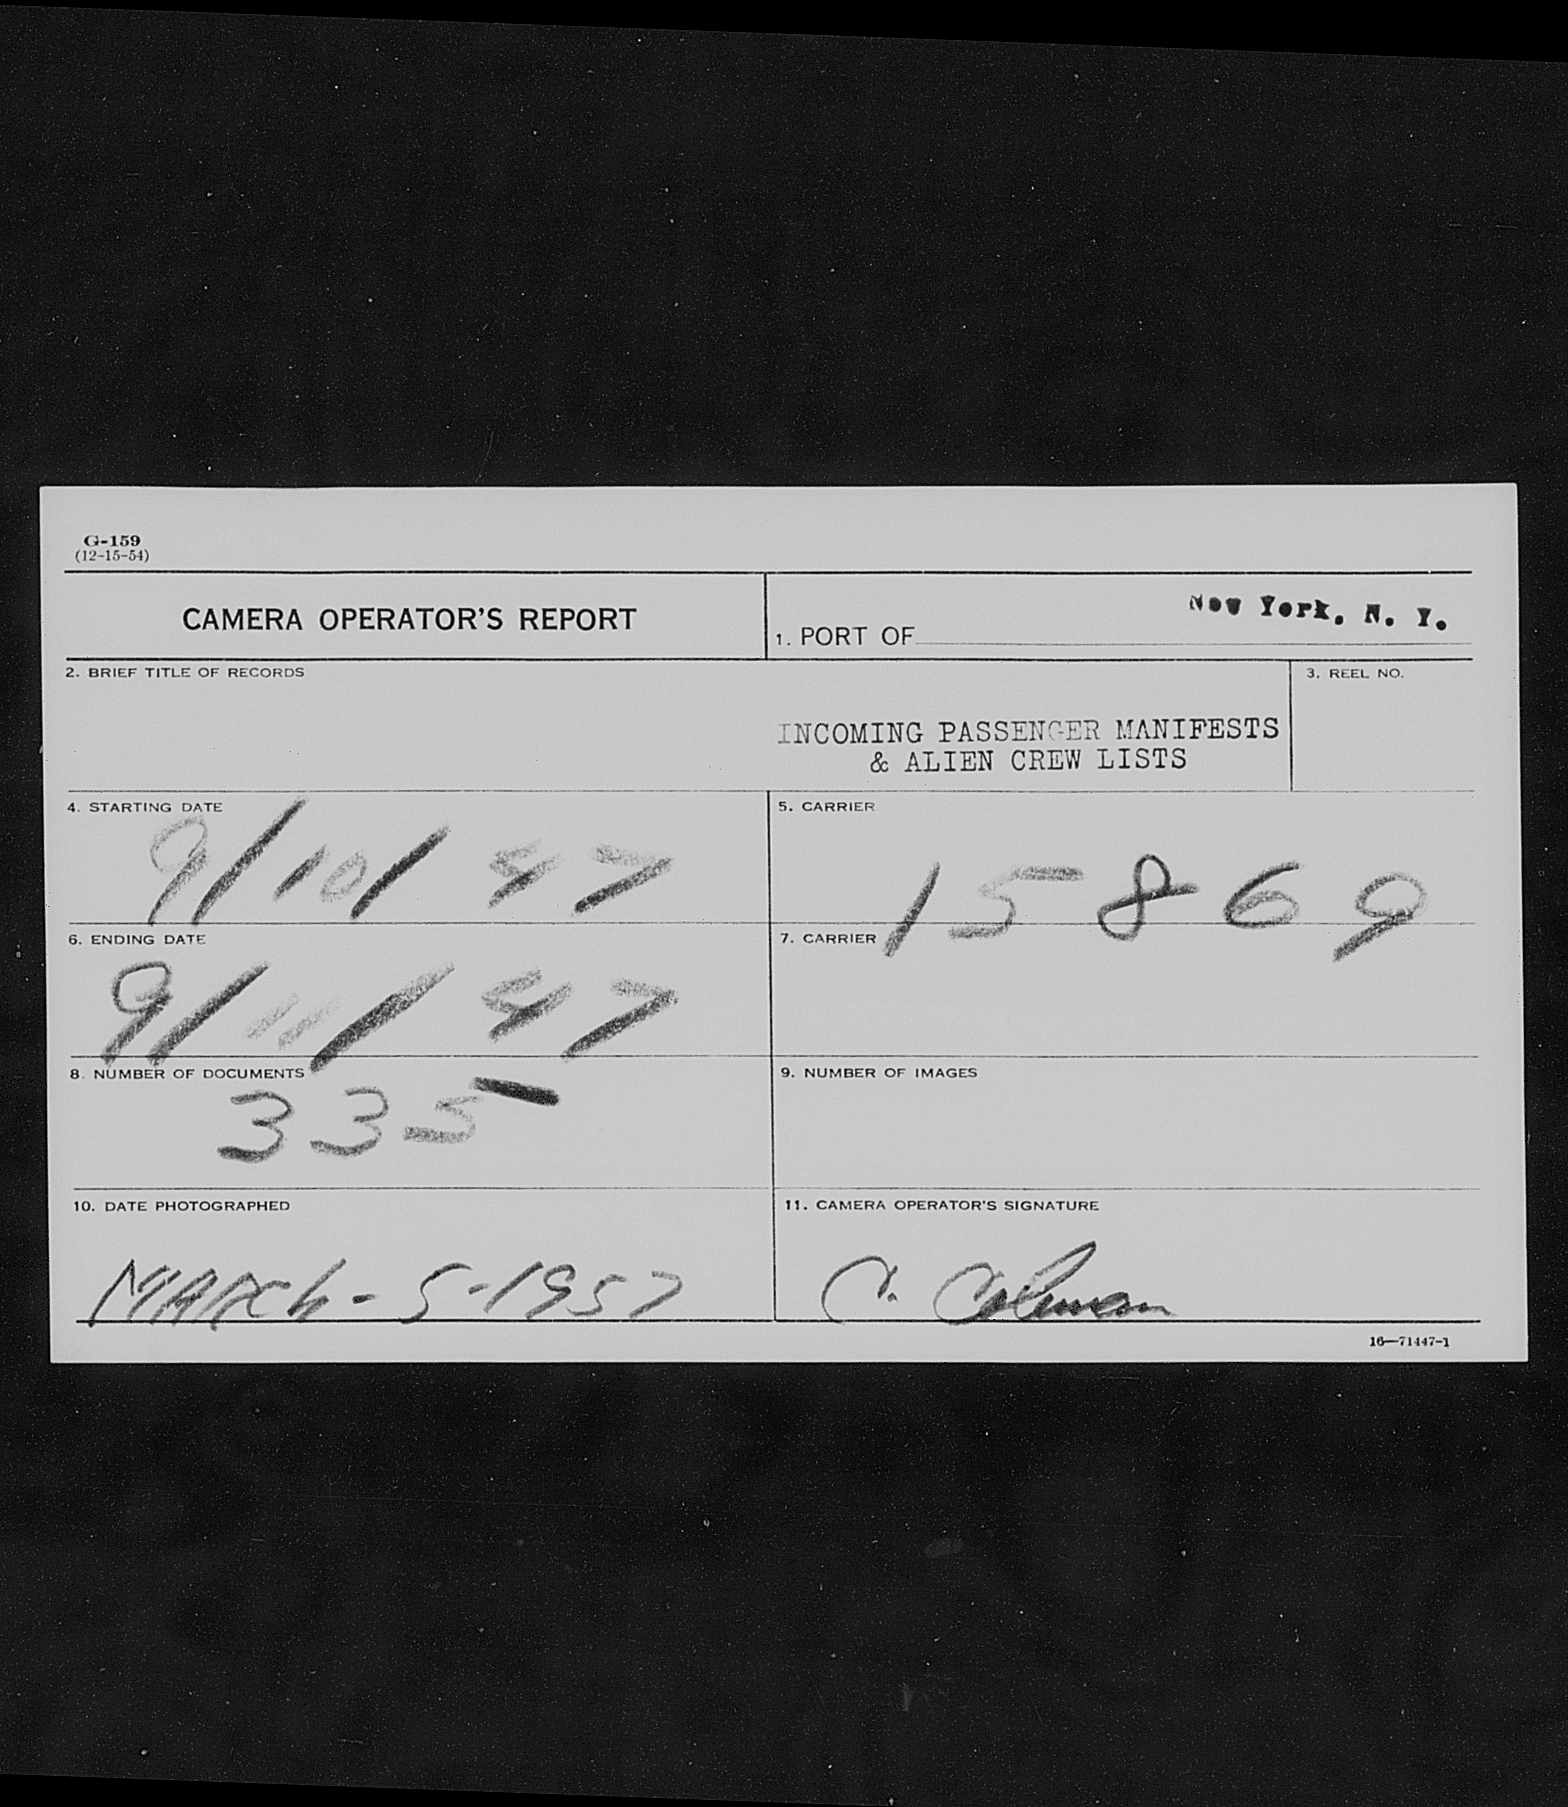 G-159
(12-15-54)
CAMERA OPERATOR'S REPORT
1. PORT OF New York, N. Y.
2. BRIEF TITLE OF RECORDS
3. REEL NO.
INCOMING PASSENGER MANIFESTS
& ALIEN CREW LISTS
4. STARTING DATE
9/10/47
5. CARRIER
15869
6. ENDING DATE
9/11/47
7. CARRIER
8. NUMBER OF DOCUMENTS
335
9. NUMBER OF IMAGES
10. DATE PHOTOGRAPHED
MARCh-5-1957
11. CAMERA OPERATOR'S SIGNATURE
C. Coleman
16—71447-1